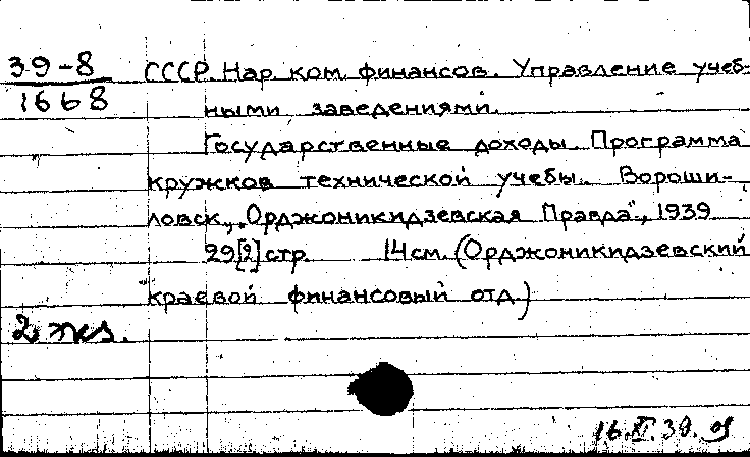 39-8
1668
СССР. Нар. ком. финансов. Управление учеб-
ными заведениями.
Государственные доходы. Программа
кружков технической учебы. Вороши-
ловск, „Орджоникидзевская Правда", 1939
29[2] стр. 14 см. (Орджоникидзевский
краевой финансовый отд.)
2 экз.
16.XI.39.